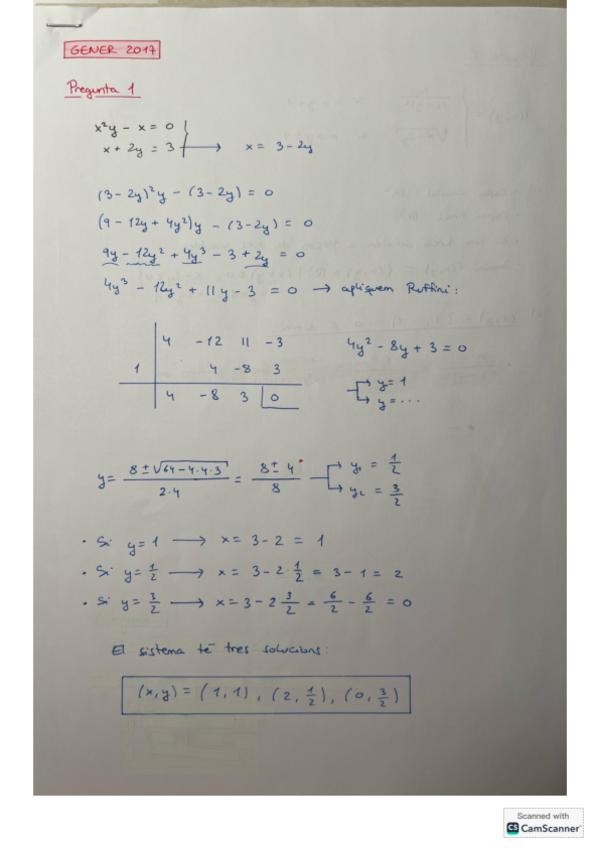 GENER 2017
Pregunta 1
x²y - x = 0
x + 2y = 3 → x = 3 - 2y
(3 - 2y)²y - (3 - 2y) = 0
(9 - 12y + 4y²)y - (3 - 2y) = 0
9y - 12y² + 4y³ - 3 + 2y = 0
4y³ - 12y² + 11y - 3 = 0 → apliquem Ruffini:
4 -12 11 -3
4y² - 8y + 3 = 0
1 4 -8 3
→ y = 1
4 -8 3 0
→ y = ...
y = (8 ± √(64 - 4·4·3)) / (2·4) = (8 ± 4) / 8 → y₁ = 1/2
→ y₂ = 3/2
• Si y = 1 → x = 3 - 2 = 1
• Si y = 1/2 → x = 3 - 2·1/2 = 3 - 1 = 2
• Si y = 3/2 → x = 3 - 2 3/2 = 6/2 - 6/2 = 0
El sistema té tres solucions:
(x, y) = (1, 1), (2, 1/2), (0, 3/2)
Scanned with
CS CamScanner